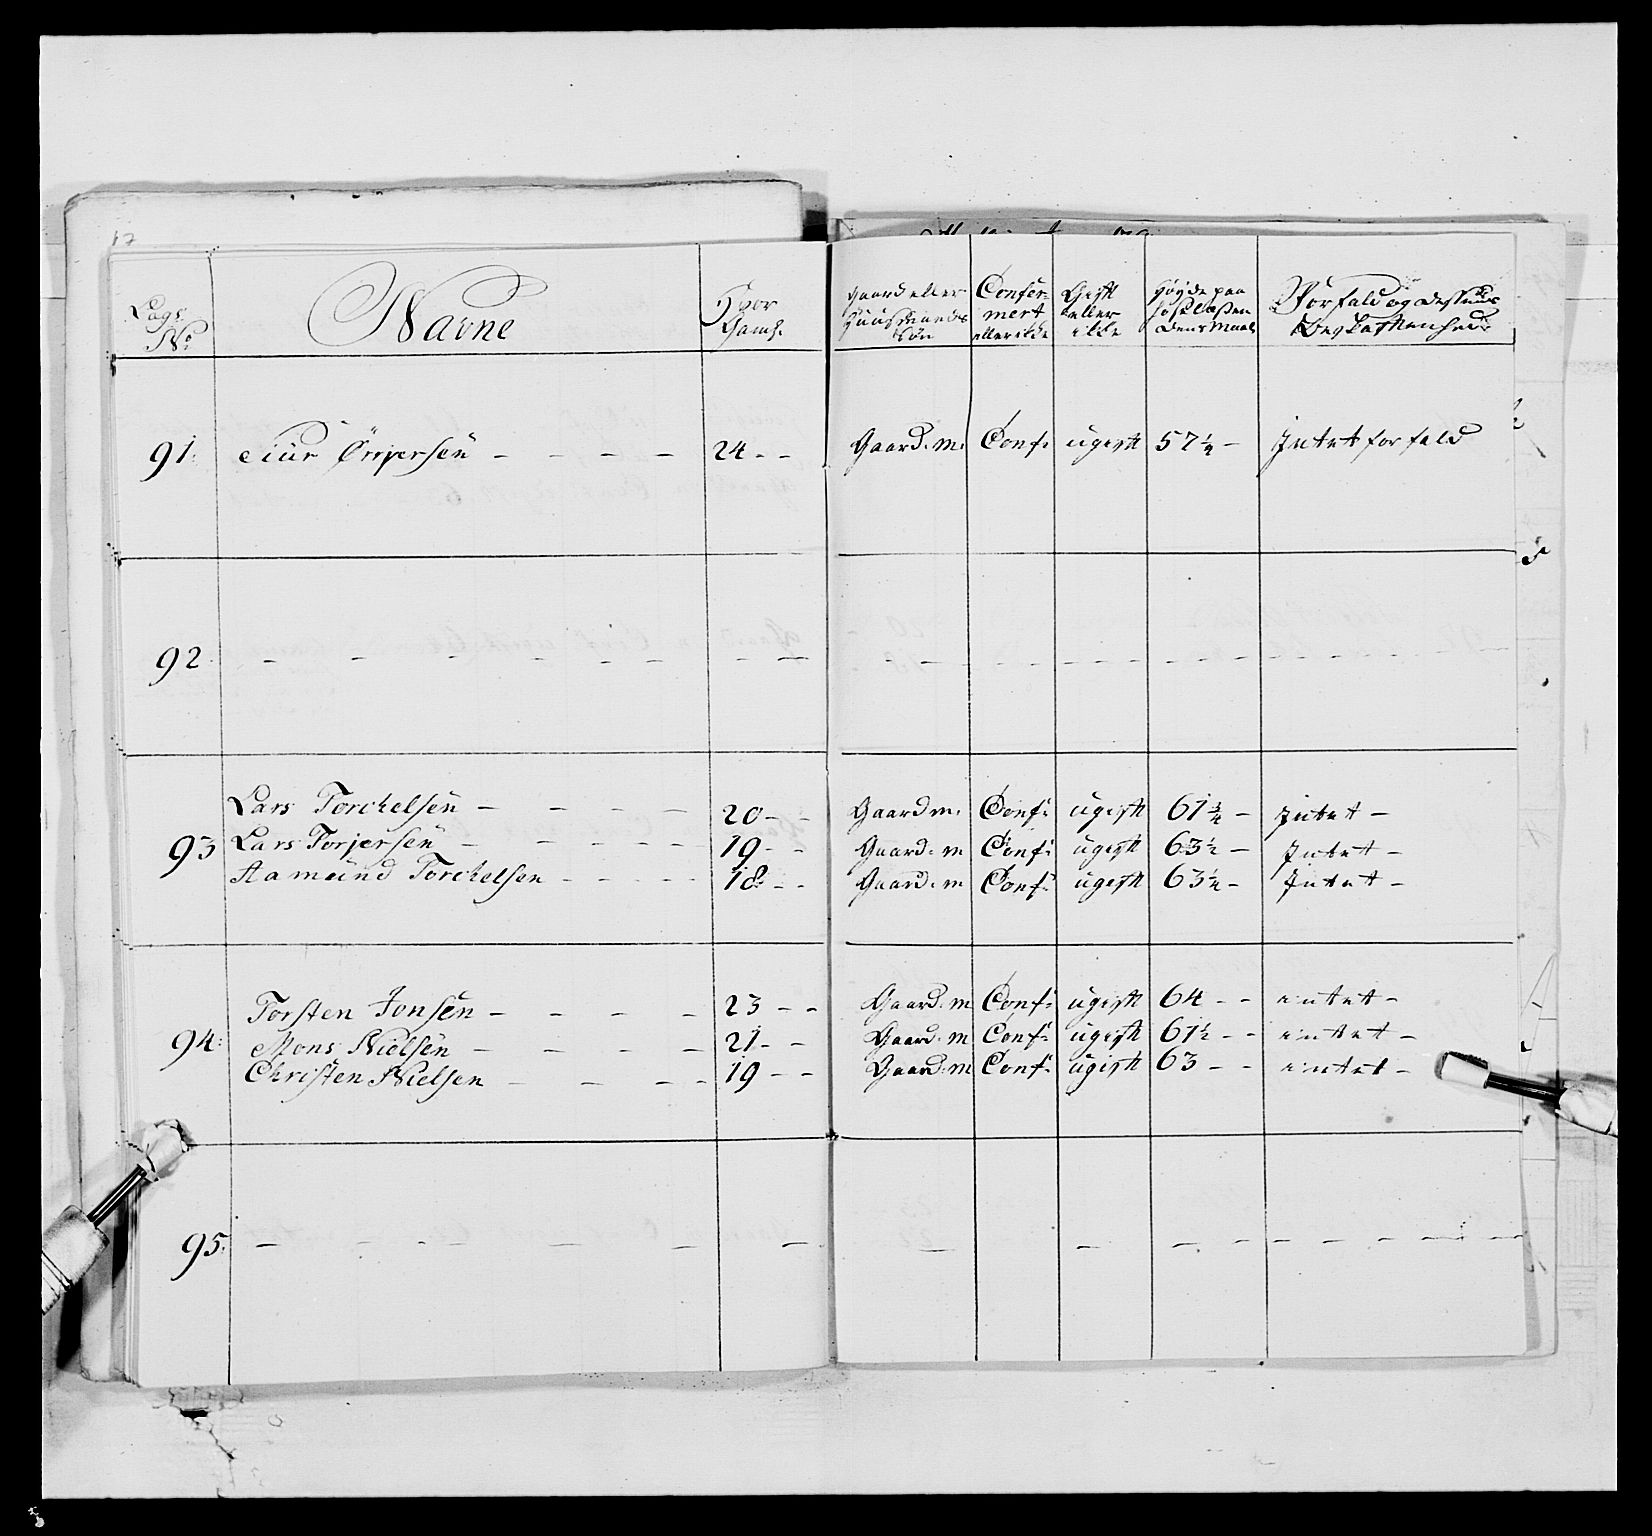 17
Lægs No
Navne
Hvor Gaml:
Gaard eller Huusmands Søn
Confermert eller ikke
Gift eller ikke
Høyde paa Sokkelæsten
Forfald og dessens Beskaffenhed
91: Siur Ørjersen – – – – – 24 – – Gaard: m: Conf: ugift 57½ – Intet forfald
92. – – – – – – – –
Lars Torchelsen – – – – 20 – – Gaard m: Conf: ugift 61¾ – Intet –
93 Lars Torjersen – – – – – 19 – – Gaard: m Conf: ugift 63½ – Intet –
Aamund Torchelsen – – – – – 18: – – Gaard: m Conf: ugift 63¼ – Intet –
Torsten Jonsen – – – – 23 – – Gaard: m Conf: ugift 64 – – intet –
94: Mons Nielsen – – – – 21 – – Gaard: m Conf: ugift 61½ – – intet –
Christen Nielsen – – – – 19 – – Gaard: m Conf: ugift 63 – – intet –
95: – – – – – – – –